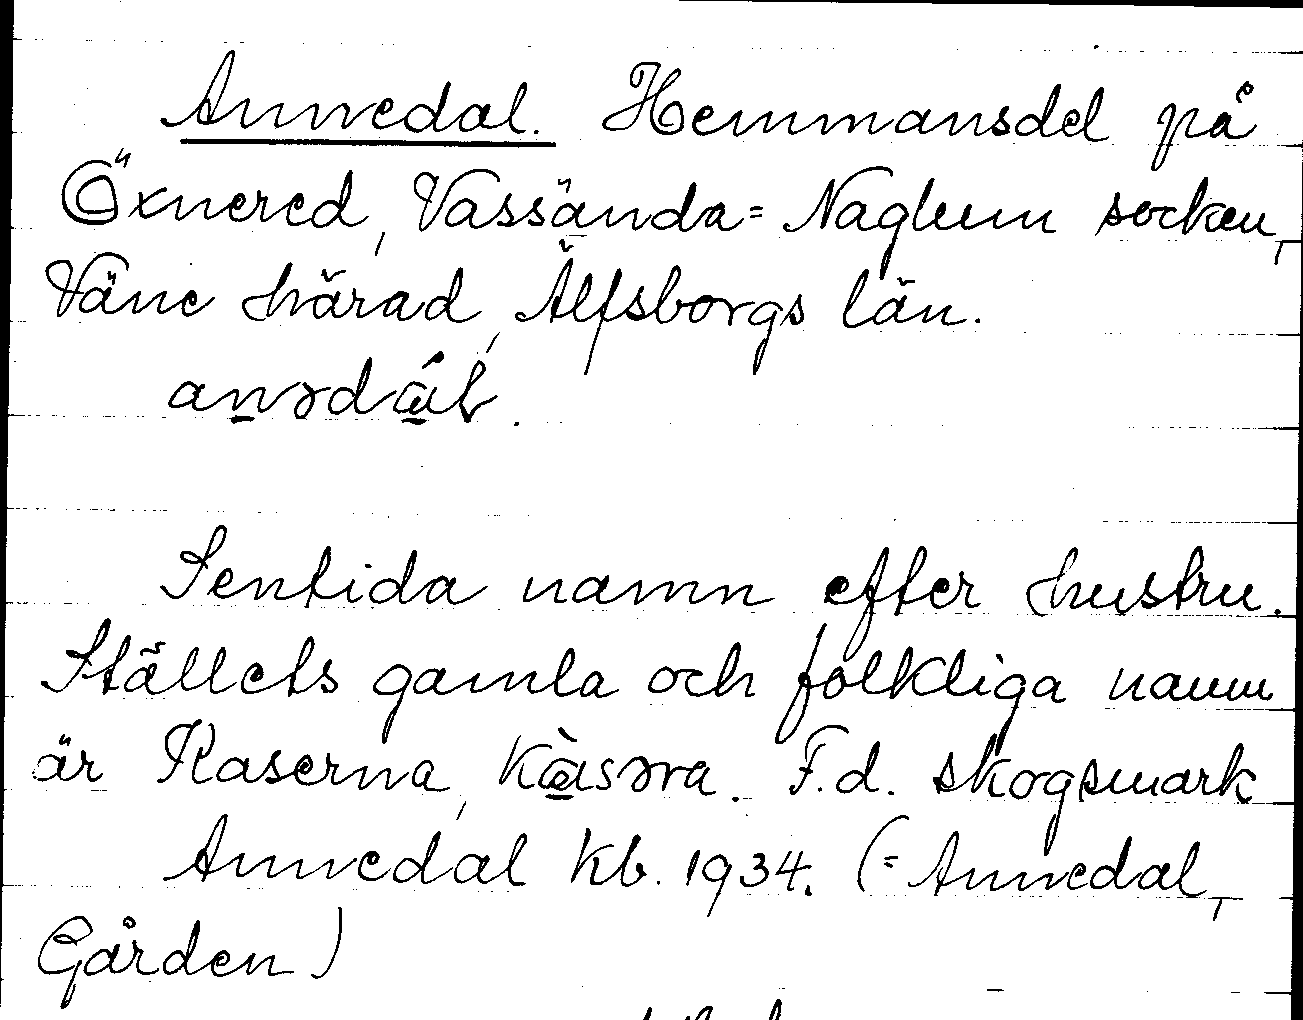 Annedal. Hemmansdel på
Öxnered, Vassända-Naglum socken,
Väne härad, Älfsborgs län.
anədál.
Sentida namn efter hustru.
Ställets gamla och folkliga namn
är Kaserna, kàsəra. F.d. skogsmark
Annedal Kb. 1934. (= Annedal,
Gården)